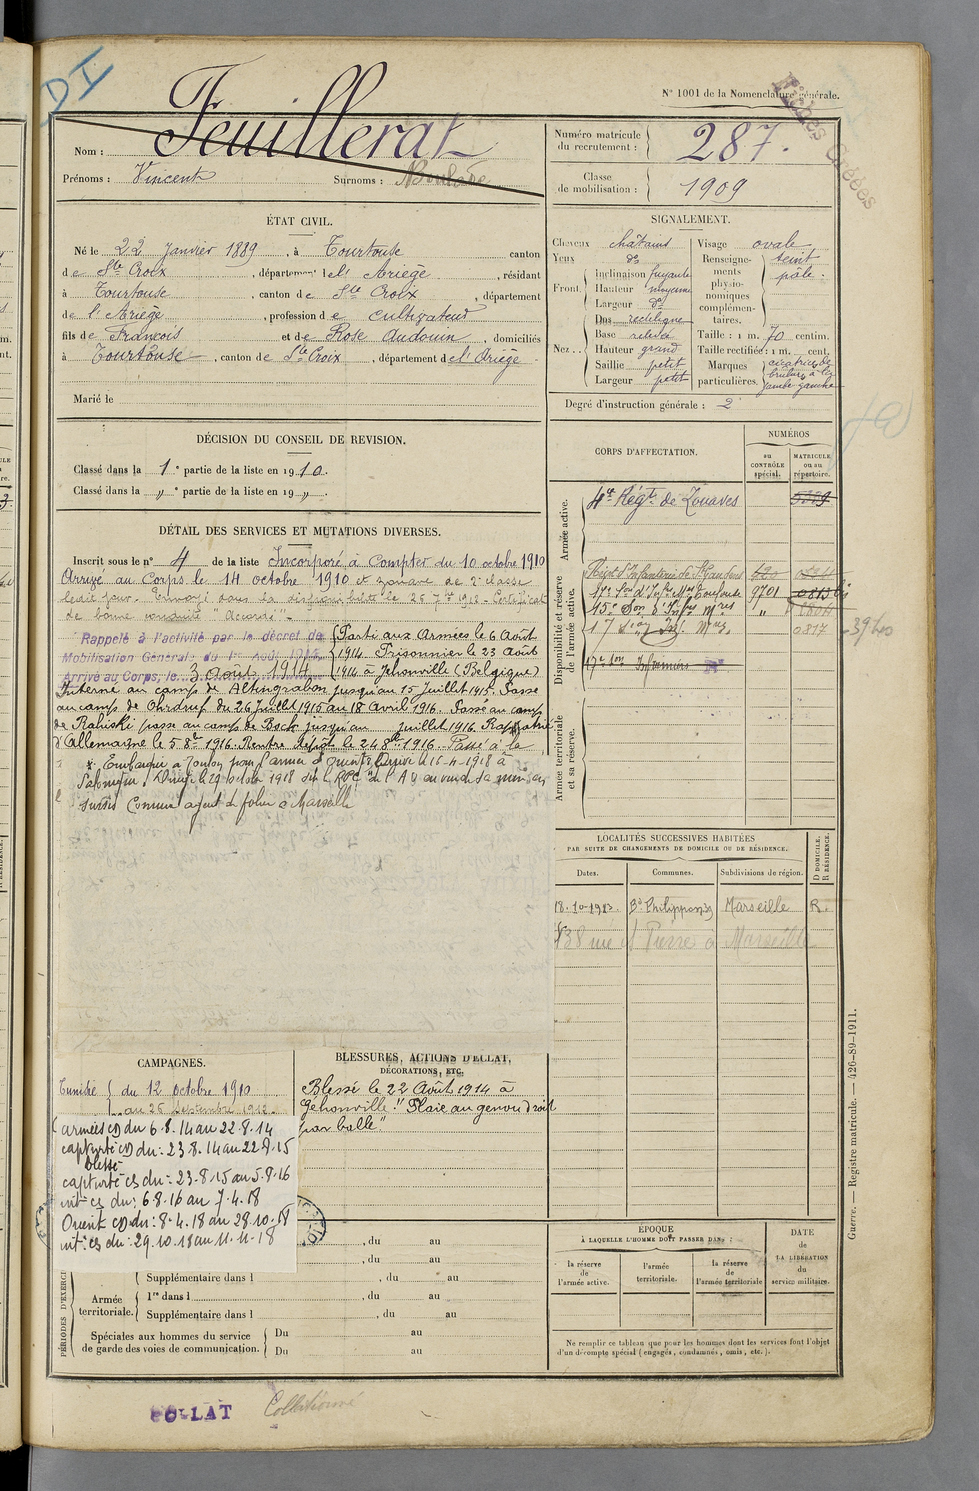 DI
N° 1001 de la Nomenclature générale.
Fiches Créées
Nom : Feuillerat
Prénoms : Vincent Surnoms :
Numéro matricule du recrutement : 287.
Classe de mobilisation : 1909
ÉTAT CIVIL.
Né le 22 Janvier 1889, à Tourtouse canton
de Ste Croix, département de l'Ariège, résidant
à Tourtouse, canton de Ste Croix, département
de l'Ariège, profession de cultivateur
fils de François et de Rose Audouin, domiciliés
à Tourtouse, canton de Ste Croix, département de l'Ariège
Marié le
SIGNALEMENT.
Cheveux châtains Visage ovale
Yeux do Renseignements physionomiques complémentaires. teint pâle.
Front Inclinaison fuyante
Hauteur moyenne
Largeur do
Nez Dos rectiligne
Base relevée
Hauteur grand
Saillie petit
Largeur petit
Taille : 1 m. 70 centim.
Taille rectifiée : 1 m. cent.
Marques particulières. cicatrice de brulure à la jambe gauche
Degré d'instruction générale : 2
DÉCISION DU CONSEIL DE REVISION.
Classé dans la 1e partie de la liste en 1910.
Classé dans la " e partie de la liste en 19 ".
DÉTAIL DES SERVICES ET MUTATIONS DIVERSES.
Inscrit sous le n° 4 de la liste Incorporé à Compter du 10 octobre 1910
Arrivé au Corps le 14 octobre 1910 et zouave de 2e classe
ledit jour. Envoyé dans la disponibilité le 26 7bre 1912. Certificat
de bonne conduite "Accordé".
Rappelé à l'activité par le décret de
Mobilisation Générale du 1er Août 1914.
Arrivé au Corps, le 3 Août 1914
Parti aux Armées le 6 Août
1914. Prisonnier le 23 Août
1914 à Jehonville (Belgique)
Interné au camp de Altengrabow jusqu'au 15 Juillet 1915. Passé
au camp de Ohrdruf du 26 Juillet 1915 au 18 Avril 1916. Passé au camp
de passe au camp de jusqu'au juillet 1916. Rapatrié
d'Allemagne le 5 8bre 1916. Rentré dépôt le 24 8bre 1916. Passé à la
Embarqué à Toulon pour l'armée d'Orient le 16-4-1918 à
Salonique. Dirigé le 29 octobre 1918 sur
sursis comme agent de police à Marseille
CORPS D'AFFECTATION.
NUMÉROS
AU CONTRÔLE spécial.
MATRICULE ou au répertoire.
Armée active.
4e Régt de Zouaves 5009
Disponibilité et réserve de l'armée active.
Régt d'Infanterie de St Gaudens 420
17e Son d'Infrs Mres Toulouse 9701 0813
15e Son d'Infrs Mres "
17 Son Inf. Mres 0817
17e Son Infirmiers
Armée territoriale et sa réserve.
LOCALITÉS SUCCESSIVES HABITÉES
PAR SUITE DE CHANGEMENTS DE DOMICILE OU DE RÉSIDENCE.
Dates. Communes. Subdivisions de région. D DOMICILE. R RÉSIDENCE.
18-10-1913 Bd Philippon 39 Marseille R.
138 rue St Pierre à Marseille
CAMPAGNES.
Tunisie du 12 octobre 1910
au 26 Décembre 1912
armées CD du 6.8.14 au 22.8.14
captivité CD du : 23.8.14 au 22.8.15
blessé
captivité CS du : 23.8.15 au 5.8.16
int CS du : 6.8.16 au 7.4.18
Orient CD du : 8.4.18 au 28.10.18
int CS du : 29.10.18 au 11.11.18
BLESSURES, ACTIONS D'ÉCLAT,
DÉCORATIONS, ETC.
Blessé le 22 Août 1914 à
Jehonville. "Plaie au genou droit
par balle".
PÉRIODES D'EXERCI
, du au
, du au
Supplémentaire dans l , du au
Armée territoriale. 1re dans l , du au
Supplémentaire dans l , du au
Spéciales aux hommes du service de garde des voies de communication. Du au
Du au
ÉPOQUE
À LAQUELLE L'HOMME DOIT PASSER DANS :
la réserve de l'armée active.
l'armée territoriale.
la réserve de l'armée territoriale
DATE de LA LIBÉRATION du service militaire.
Ne remplir ce tableau que pour les hommes dont les services font l'objet
d'un décompte spécial (engagés, condamnés, omis, etc.).
Guerre. — Registre matricule. — 426-89-1911.
Collationné